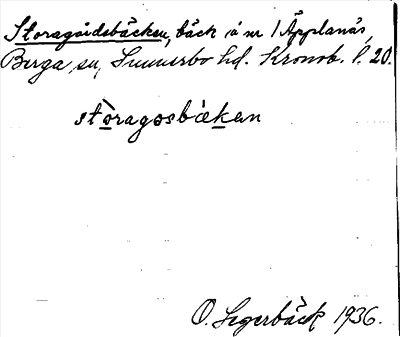 Storagårdsbäcken, bäck i å nr 1 Äpplanäs,
Berga sn, Sunnerbo hd. Kronob. l. 20.
stòragosbὰekan
O. Segerbäck 1936.